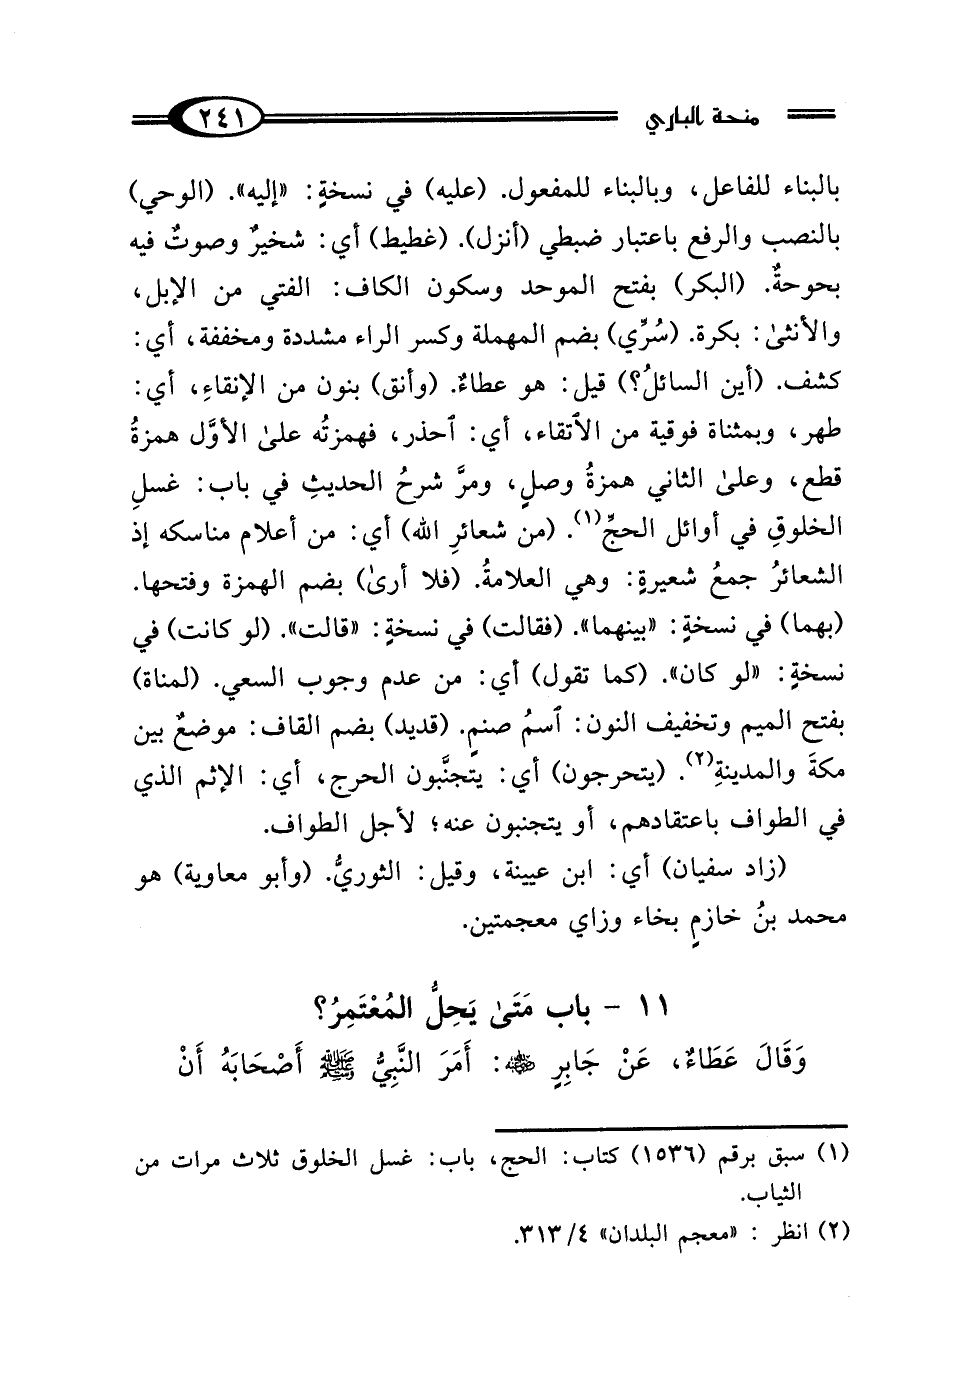 منحة الباري ٢٤١
بالبناء للفاعل، وبالبناء للمفعول. (عليه) في نسخةٍ: «إليه». (الوحي)
بالنصب والرفع باعتبار ضبطي (أنزل). (غطيط) أي: شخيرٌ وصوتٌ فيه
بحوحةٌ. (البكر) بفتح الموحد وسكون الكاف: الفتي من الإبل،
والأنثىٰ: بكرة. (سُرِّي) بضم المهملة وكسر الراء مشددة ومخففة، أي:
كشف. (أين السائلُ؟) قيل: هو عطاءٌ. (وأنق) بنون من الإنقاءِ، أي:
طهر، وبمثناة فوقية من الاتقاء، أي: ٱحذر، فهمزتُه علىٰ الأوَّل همزةُ
قطع، وعلىٰ الثاني همزةُ وصلٍ، ومرَّ شرحُ الحديثِ في باب: غسلِ
الخلوقِ في أوائل الحجِّ(١). (من شعائرِ الله) أي: من أعلام مناسكه إذ
الشعائرُ جمعُ شعيرةٍ: وهي العلامةُ. (فلا أرىٰ) بضم الهمزة وفتحها.
(بهما) في نسخةٍ: «بينهما». (فقالت) في نسخةٍ: «قالت». (لو كانت) في
نسخةٍ: «لو كان». (كما تقول) أي: من عدم وجوب السعي. (لمناة)
بفتح الميم وتخفيف النون: ٱسمُ صنمٍ. (قديد) بضم القاف: موضعٌ بين
مكةَ والمدينةِ(٢). (يتحرجون) أي: يتجنَّبون الحرج، أي: الإثم الذي
في الطواف باعتقادهم، أو يتجنبون عنه؛ لأجل الطواف.
(زاد سفيان) أي: ابن عيينة، وقيل: الثوريُّ. (وأبو معاوية) هو
محمد بنُ خازمٍ بخاء وزاي معجمتين.
١١ - باب مَتَىٰ يَحِلُّ المُعْتَمِرُ؟
وَقَالَ عَطَاءٌ، عَنْ جَابِرٍ رضي الله عنه: أَمَرَ النَّبِيُّ ﷺ أَصْحَابَهُ أَنْ
(١) سبق برقم (١٥٣٦) كتاب: الحج، باب: غسل الخلوق ثلاث مرات من
الثياب.
(٢) انظر : «معجم البلدان» ٤/ ٣١٣.